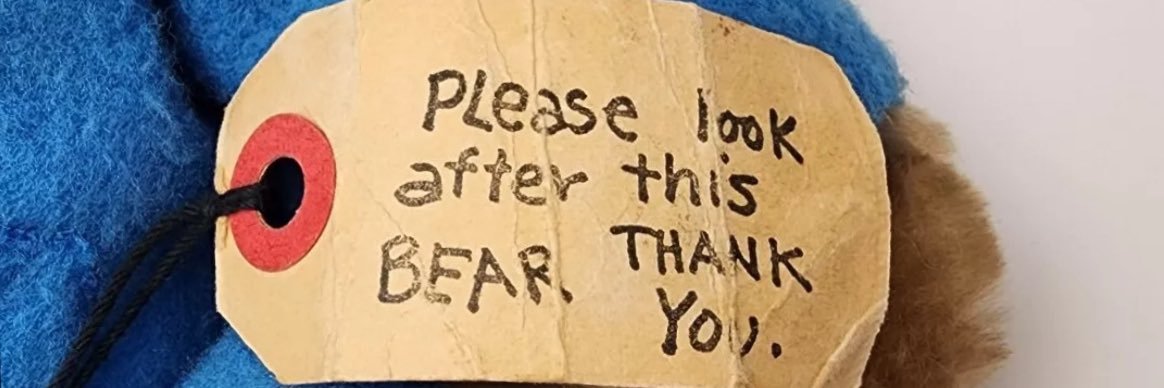 Please look
after this
BEAR THANK
YOU.